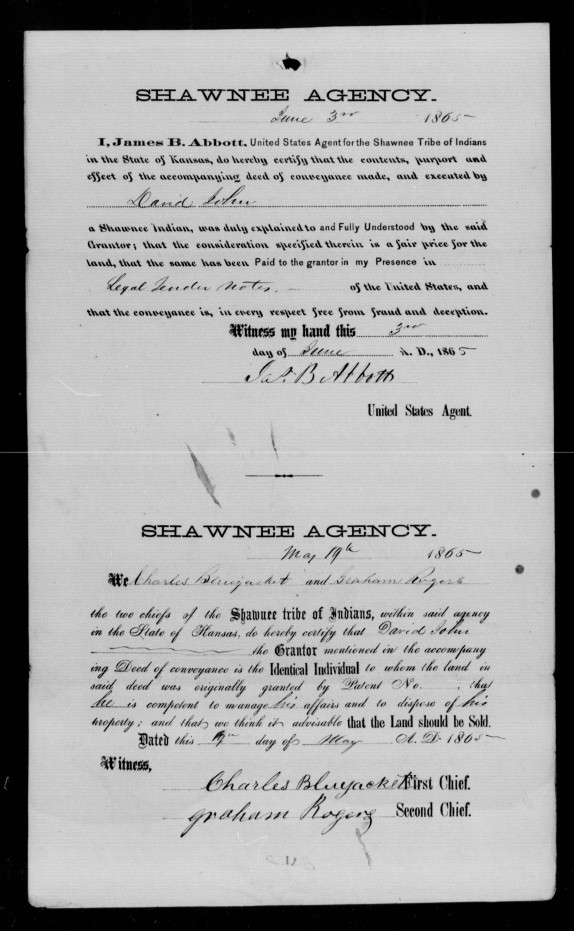 SHAWNEE AGENCY.
June 3rd 1865
I, James B. Abbott, United States Agent for the Shawnee Tribe of Indians
in the State of Kansas, do hereby certify that the contents, purport and
effect of the accompanying deed of conveyance made, and executed by
David John
a Shawnee Indian, was duly explained to and Fully Understood by the said
Grantor; that the consideration specified therein is a fair price for the
land, that the same has been Paid to the grantor in my Presence in
Legal Tender Notes. of the United States, and
that the conveyance is, in every respect free from fraud and deception.
Witness my hand this 3rd
day of June A. D., 1865
Jas. B Abbott
United States Agent.
SHAWNEE AGENCY.
May 19th 1865
We Charles Bluejacket and Graham Rogers
the two chiefs of the Shawnee tribe of Indians, within said agency
in the State of Kansas, do hereby certify that David John
the Grantor mentioned in the accompany
ing Deed of conveyance is the Identical Individual to whom the land in
said deed was originally granted by Patent No. , that
he is competent to manage his affairs and to dispose of his
property; and that we think it advisable that the Land should be Sold.
Dated this 19th day of May A. D. 1865
Witness,
Charles Bluejacket First Chief.
graham Rogers Second Chief.